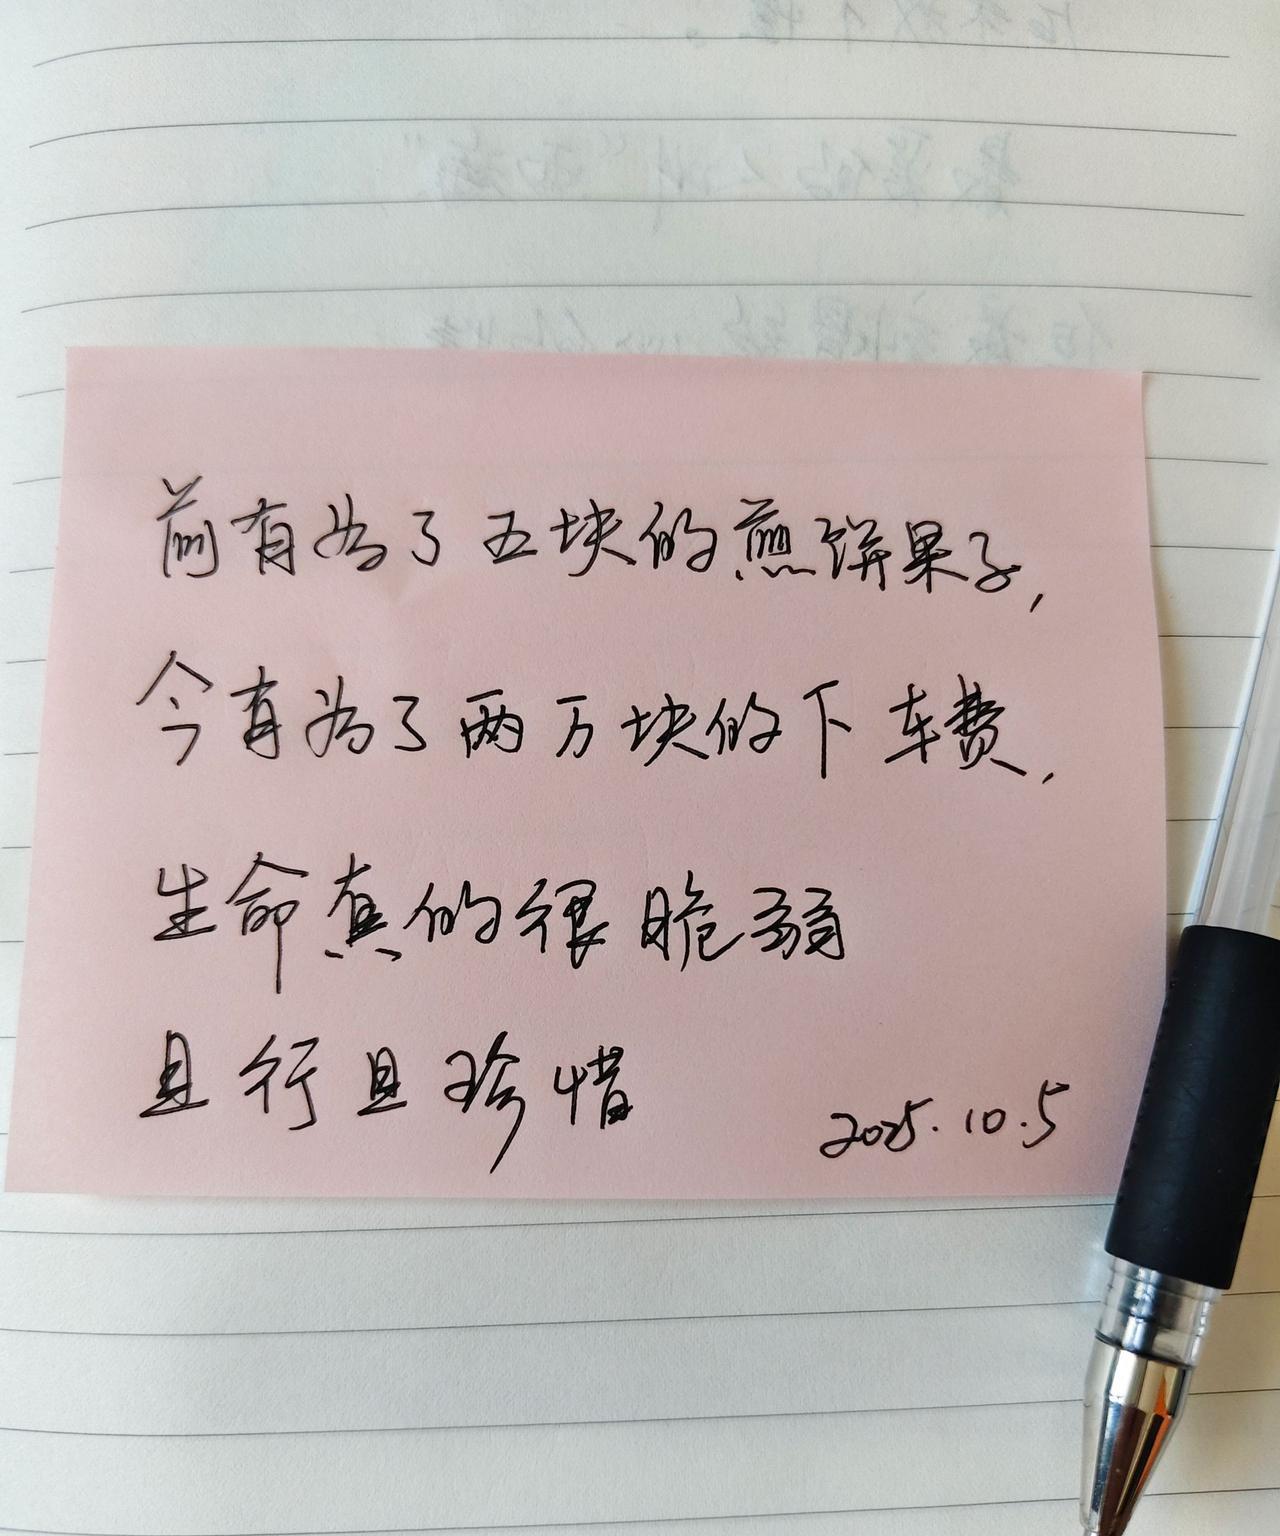 前有为了五块的煎饼果子,
今有为了两万块的下车费,
生命真的很脆弱
且行且珍惜
2025.10.5